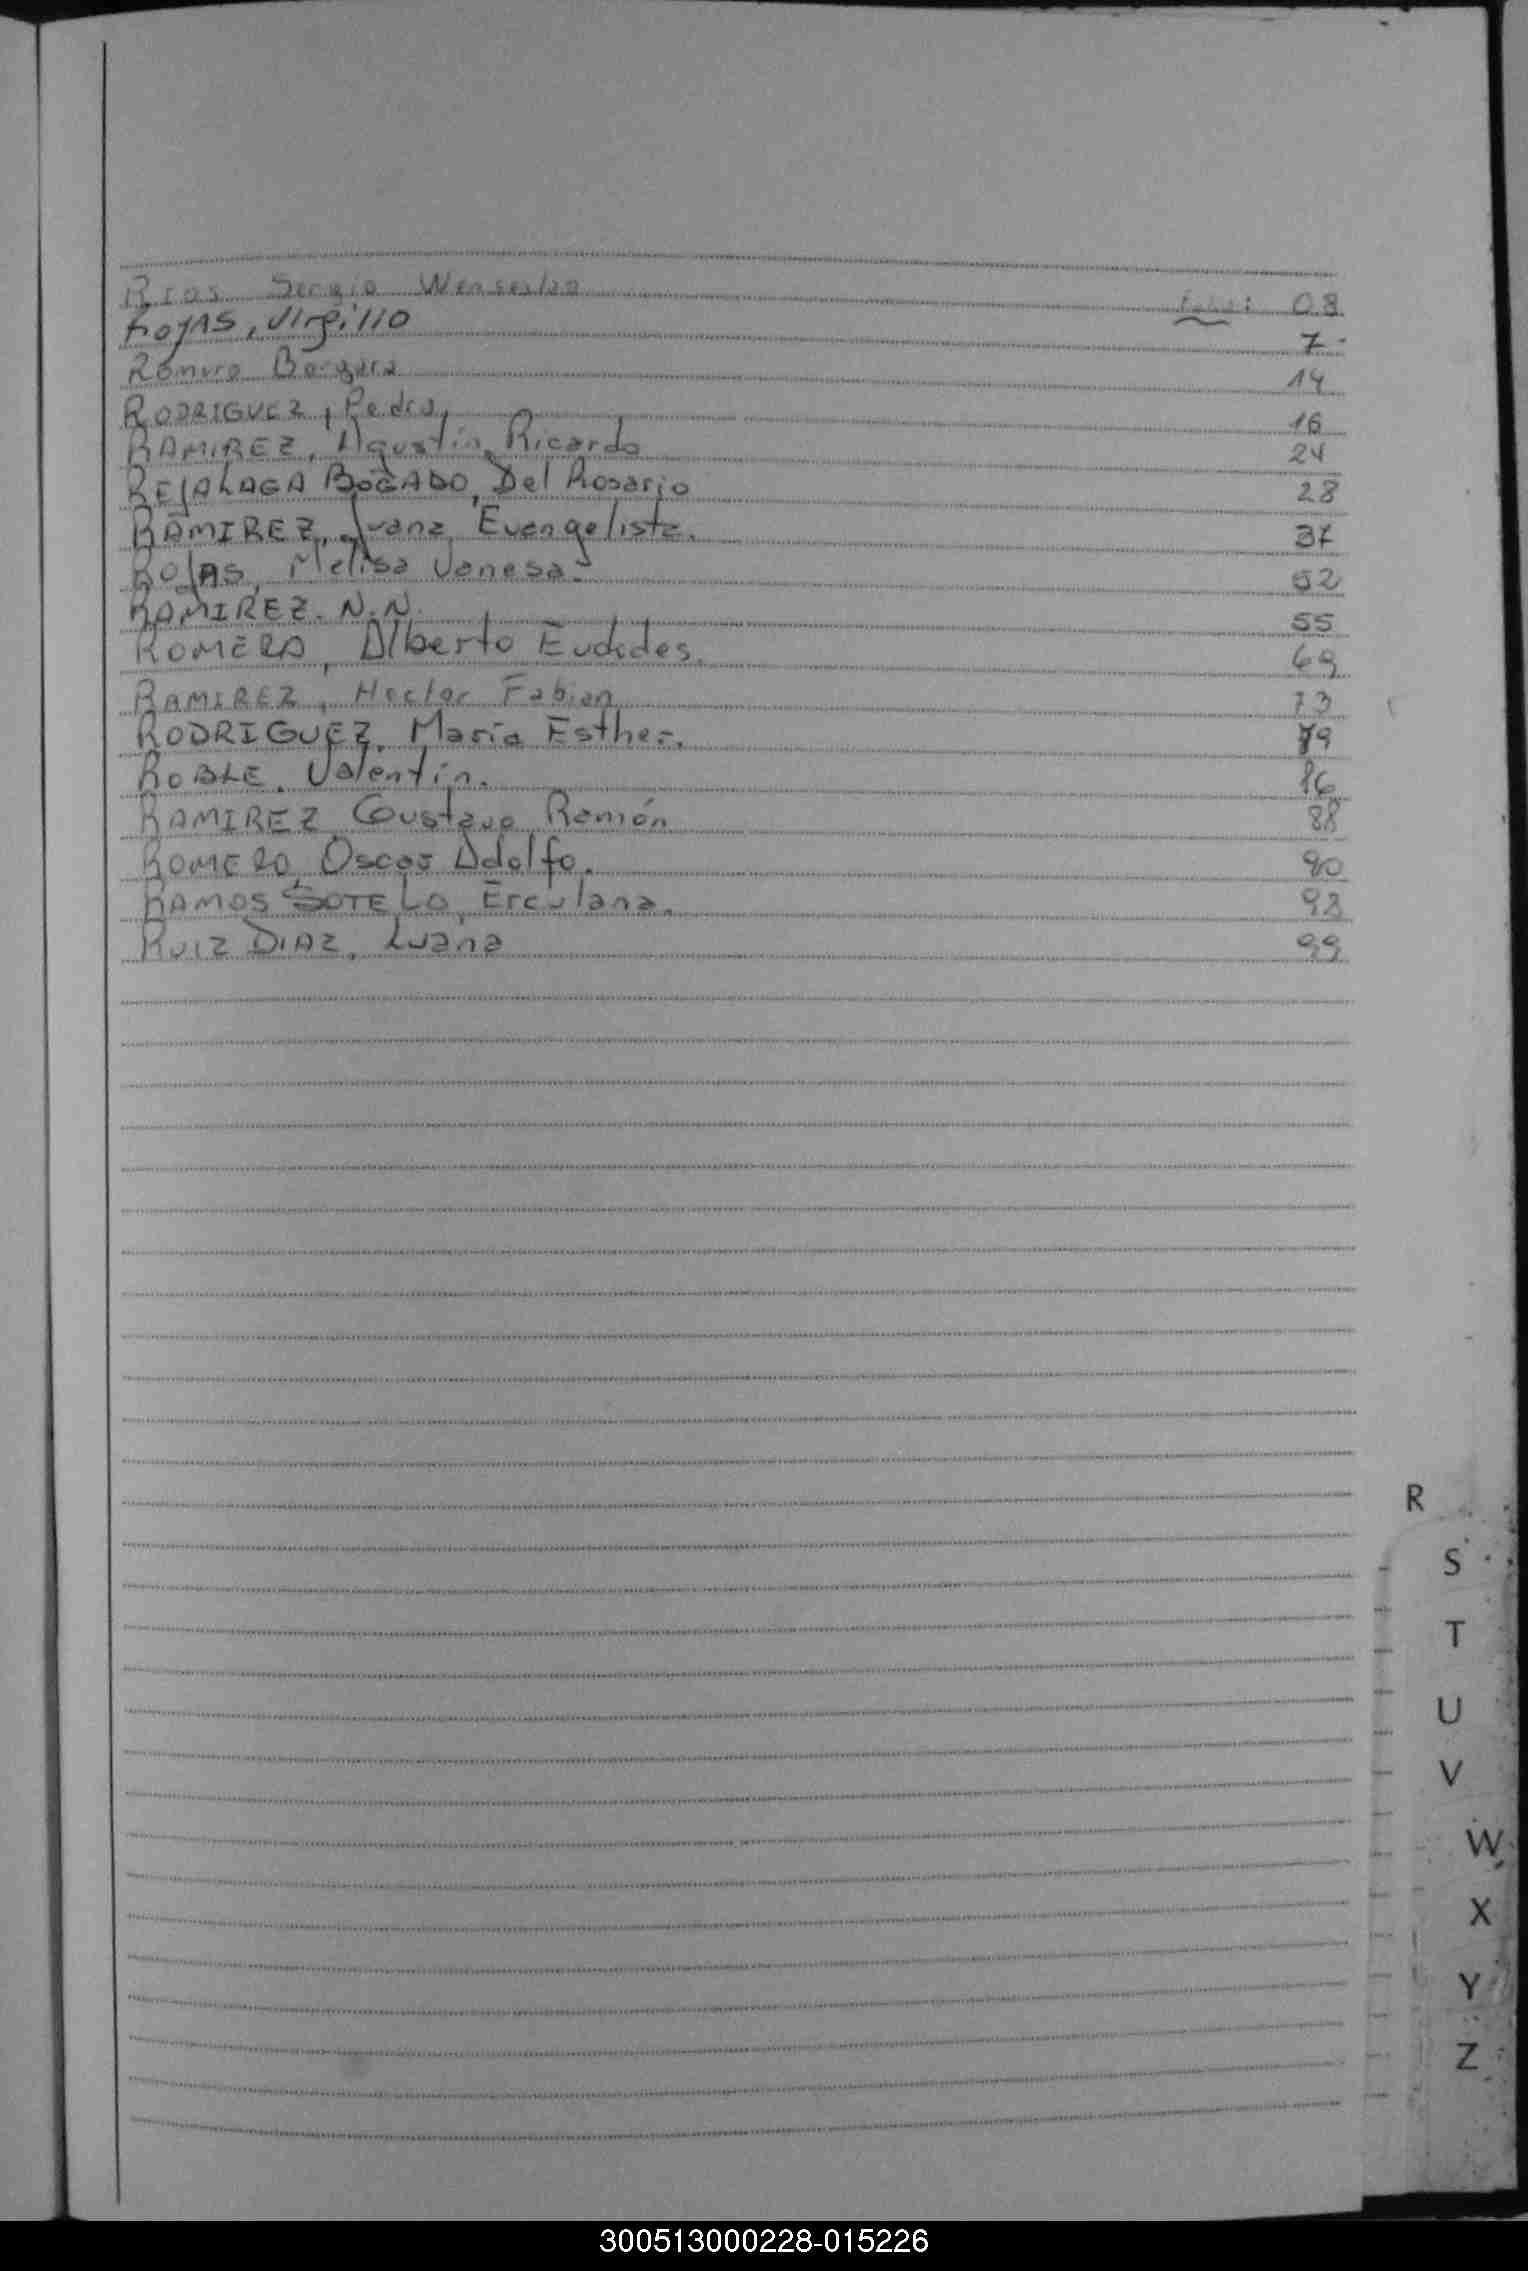 Rios Sergio Wenseslao Folio: 08
Rojas, Virgilio 7
Romero Bargara 14
RODRIGUEZ, Pedro 16
RAMIREZ, Agustín Ricardo 24
REJALAGA BOGADO, Del Rosario 28
RAMIREZ, Juana Evengelista. 37
ROJAS, Melisa Vanesa. 52
RAMIREZ. N.N. 55
ROMERO, Alberto Eudides. 69
RAMIREZ, Hector Fabian 73
RODRIGUEZ, María Esther. 79
ROBLE, Valentín. 86
RAMIREZ, Gustavo Ramón 88
ROMERO, Oscar Adolfo. 90
RAMOS SOTELO, Erculana. 98
RUIZ DIAZ, Luana 99
R
S
T
U
V
W
X
Y
Z
300513000228-015226